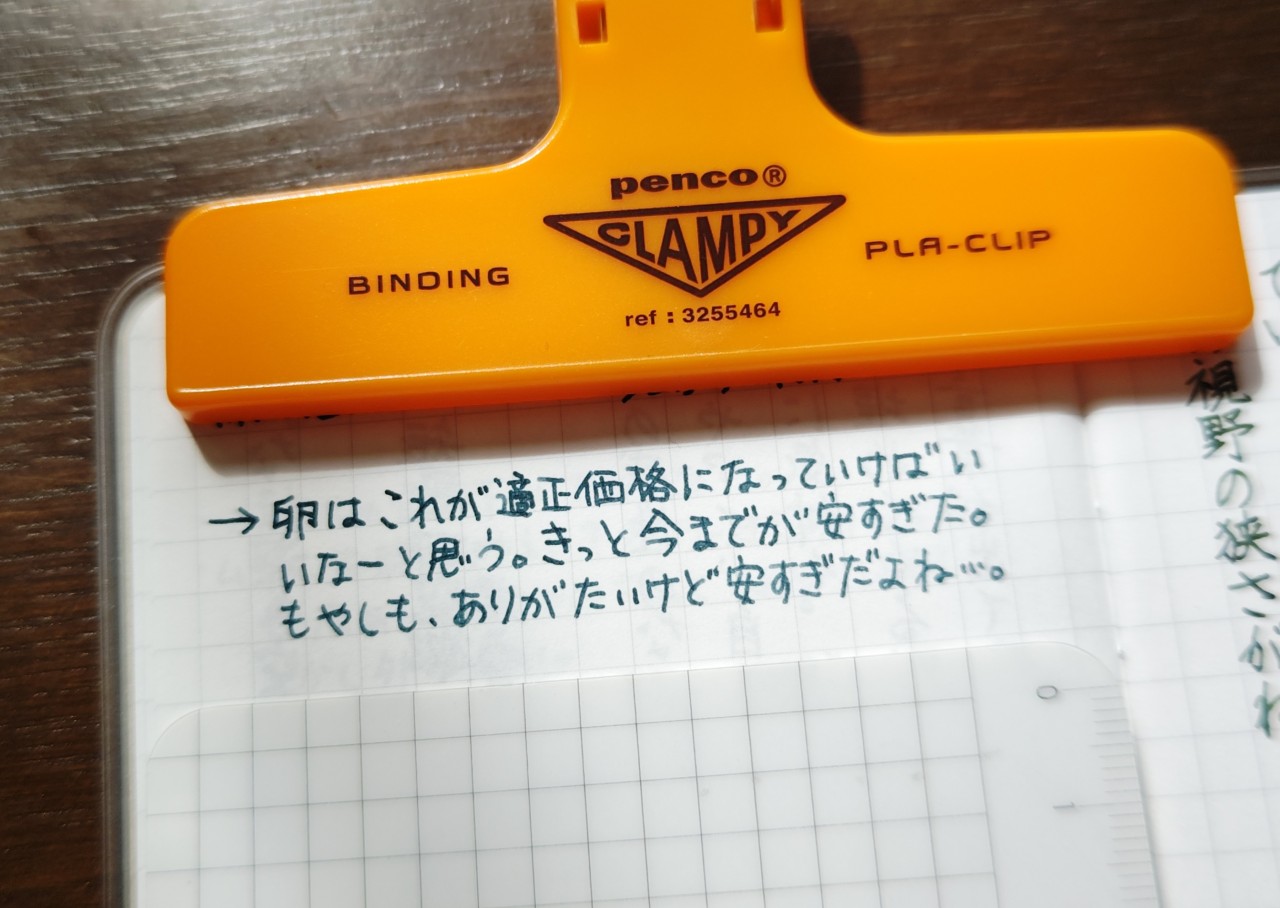 penco®
CLAMPY
BINDING
PLA-CLIP
ref : 3255464
→卵はこれが適正価格になっていけばい
いなーと思う。きっと今までが安すぎた。
もやしも、ありがたいけど安すぎだよね…。
視野の狭さがわ
0
1